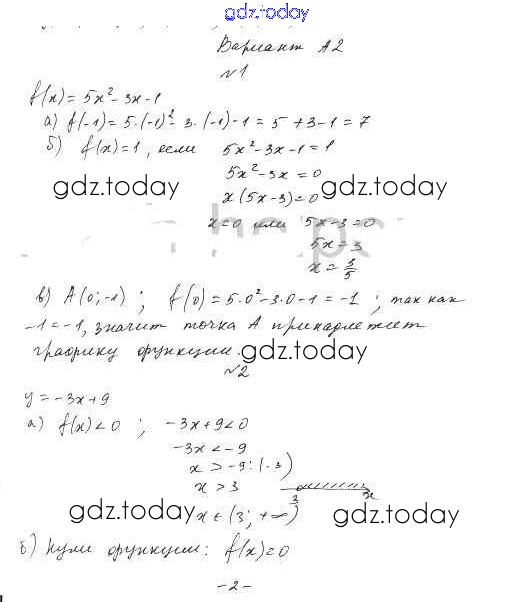 gdz.today
Вариант А2
№1
f(x) = 5x² - 3x - 1
а) f(-1) = 5·(-1)² - 3·(-1) - 1 = 5 + 3 - 1 = 7
б) f(x) = 1, если 5x² - 3x - 1 = 1
5x² - 3x = 0
gdz.today gdz.today
x(5x - 3) = 0
x = 0 или 5x - 3 = 0
5x = 3
x = 3/5
в) A(0; -1); f(0) = 5·0² - 3·0 - 1 = -1; так как
-1 = -1, значит точка А принадлежит
графику функции.
gdz.today
№2
y = -3x + 9
а) f(x) < 0; -3x + 9 < 0
-3x < -9
x > -9 : (-3)
x > 3
3 x
gdz.today x ∈ (3; +∞) gdz.today
б) Нули функции: f(x) = 0
- 2 -